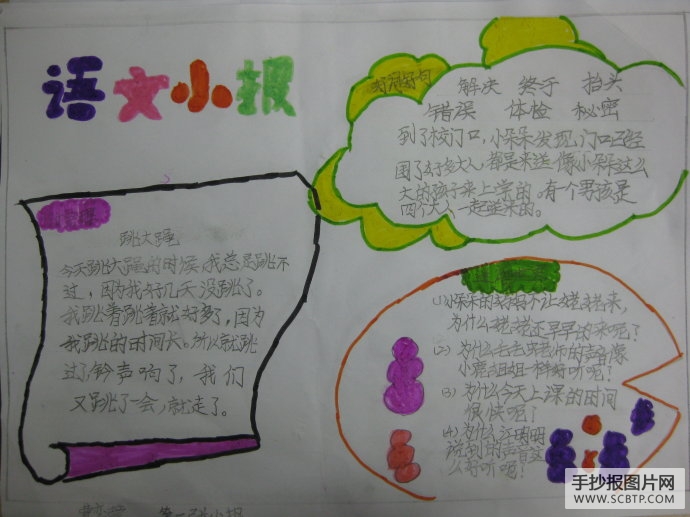 语文小报
好词好句
解决 终于 抬头
错误 体检 秘密
到了校门口,小朵朵发现,门口已经
围了好多大人,都是来送像小朵朵这么
大的孩子来上学的。有个男孩是
四个大人一起送来的。
跳大绳
今天跳大绳的时候,我总是跳不
过,因为我好几天没跳了。
我跳着跳着就好多了,因为
我跳的时间长。所以就跳
过了,铃声响了,我们
又跳了一会,就走了。
(1)小朵朵的妈妈不让姥姥来,
为什么姥姥还早早的来呢?
(2)为什么
老师的声音像
小鹿姐姐一样好听呢?
(3)为什么今天上课的时间
很快呢?
(4)为什么
明明
说到的声音这
么好听呢?
第一张小报
手抄报图片网
WWW.SCBTP.COM